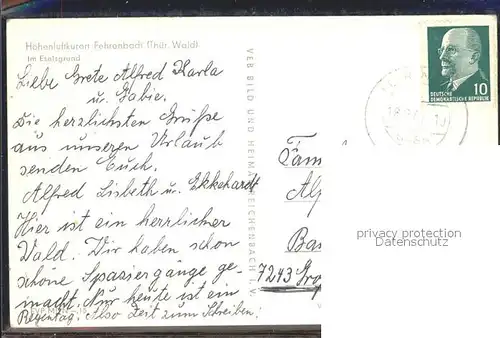 Höhenluftkurort Fehrenbach (Thür. Wald)
Im Eselsgrund
Liebe Grete Alfred Karla
u. Gabie.
Die herzlichsten Grüße
aus unseren Urlaub
senden Euch.
Alfred Lisbeth u. Ekkehardt
Hier ist ein herrlicher
Wald. Wir haben schon
schöne Spaziergänge ge-
macht. Nur heute ist ein
Regentag. Also Zeit zum Schreiben.
VEB BILD UND HEIMAT REICHENBACH I. V.
10
DEUTSCHE
DEMOKRATISCHE REPUBLIK
Fam
Alf
Bas
7243 Gro
privacy protection
Datenschutz